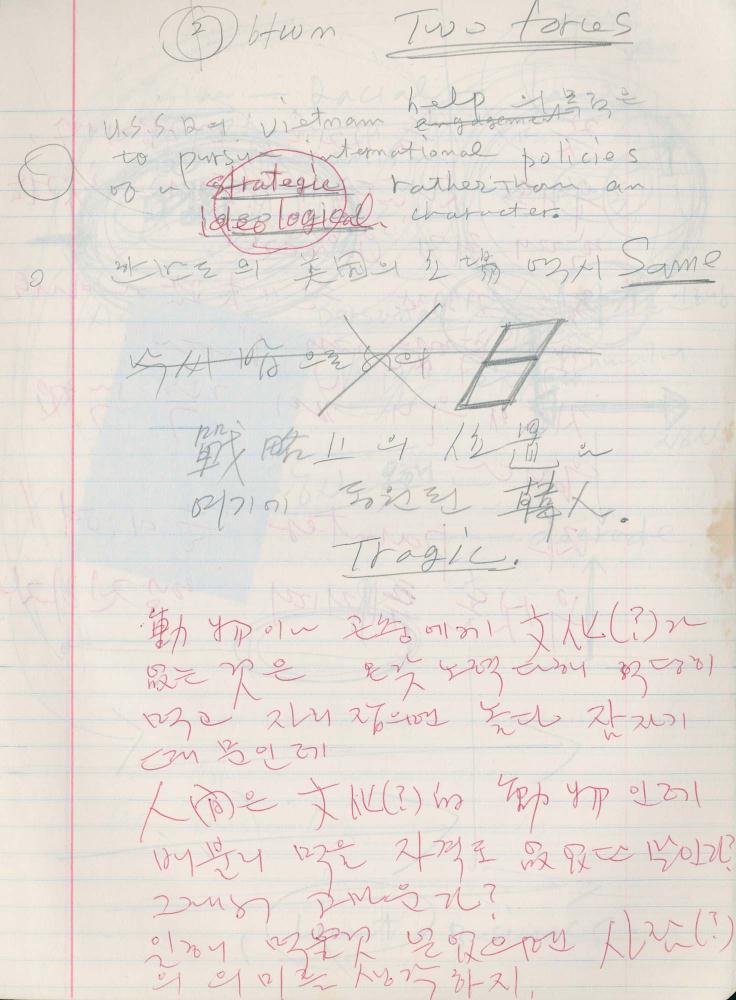 ② btwn Two forces
U.S.S.R의 Vietnam help 의 목적은
engagement
to pursue international policies
of a strategic rather than an
ideological character.
한반도의 美國의 立場 역시 Same
戰略上의 位置
여기에 동원된 韓人.
Tragic.
動物이나 곤충에게 文化(?)가
없는 것은 온갖 노력 다해
먹고 자리 잡으면 놀다 잠자기
때문인데
人間은 文化(?)的 動物인데
배불리 먹을 자격도
그래서 고마운가?
일해 먹을것 얻었으면 사람(?)
의 의미를 생각하지.